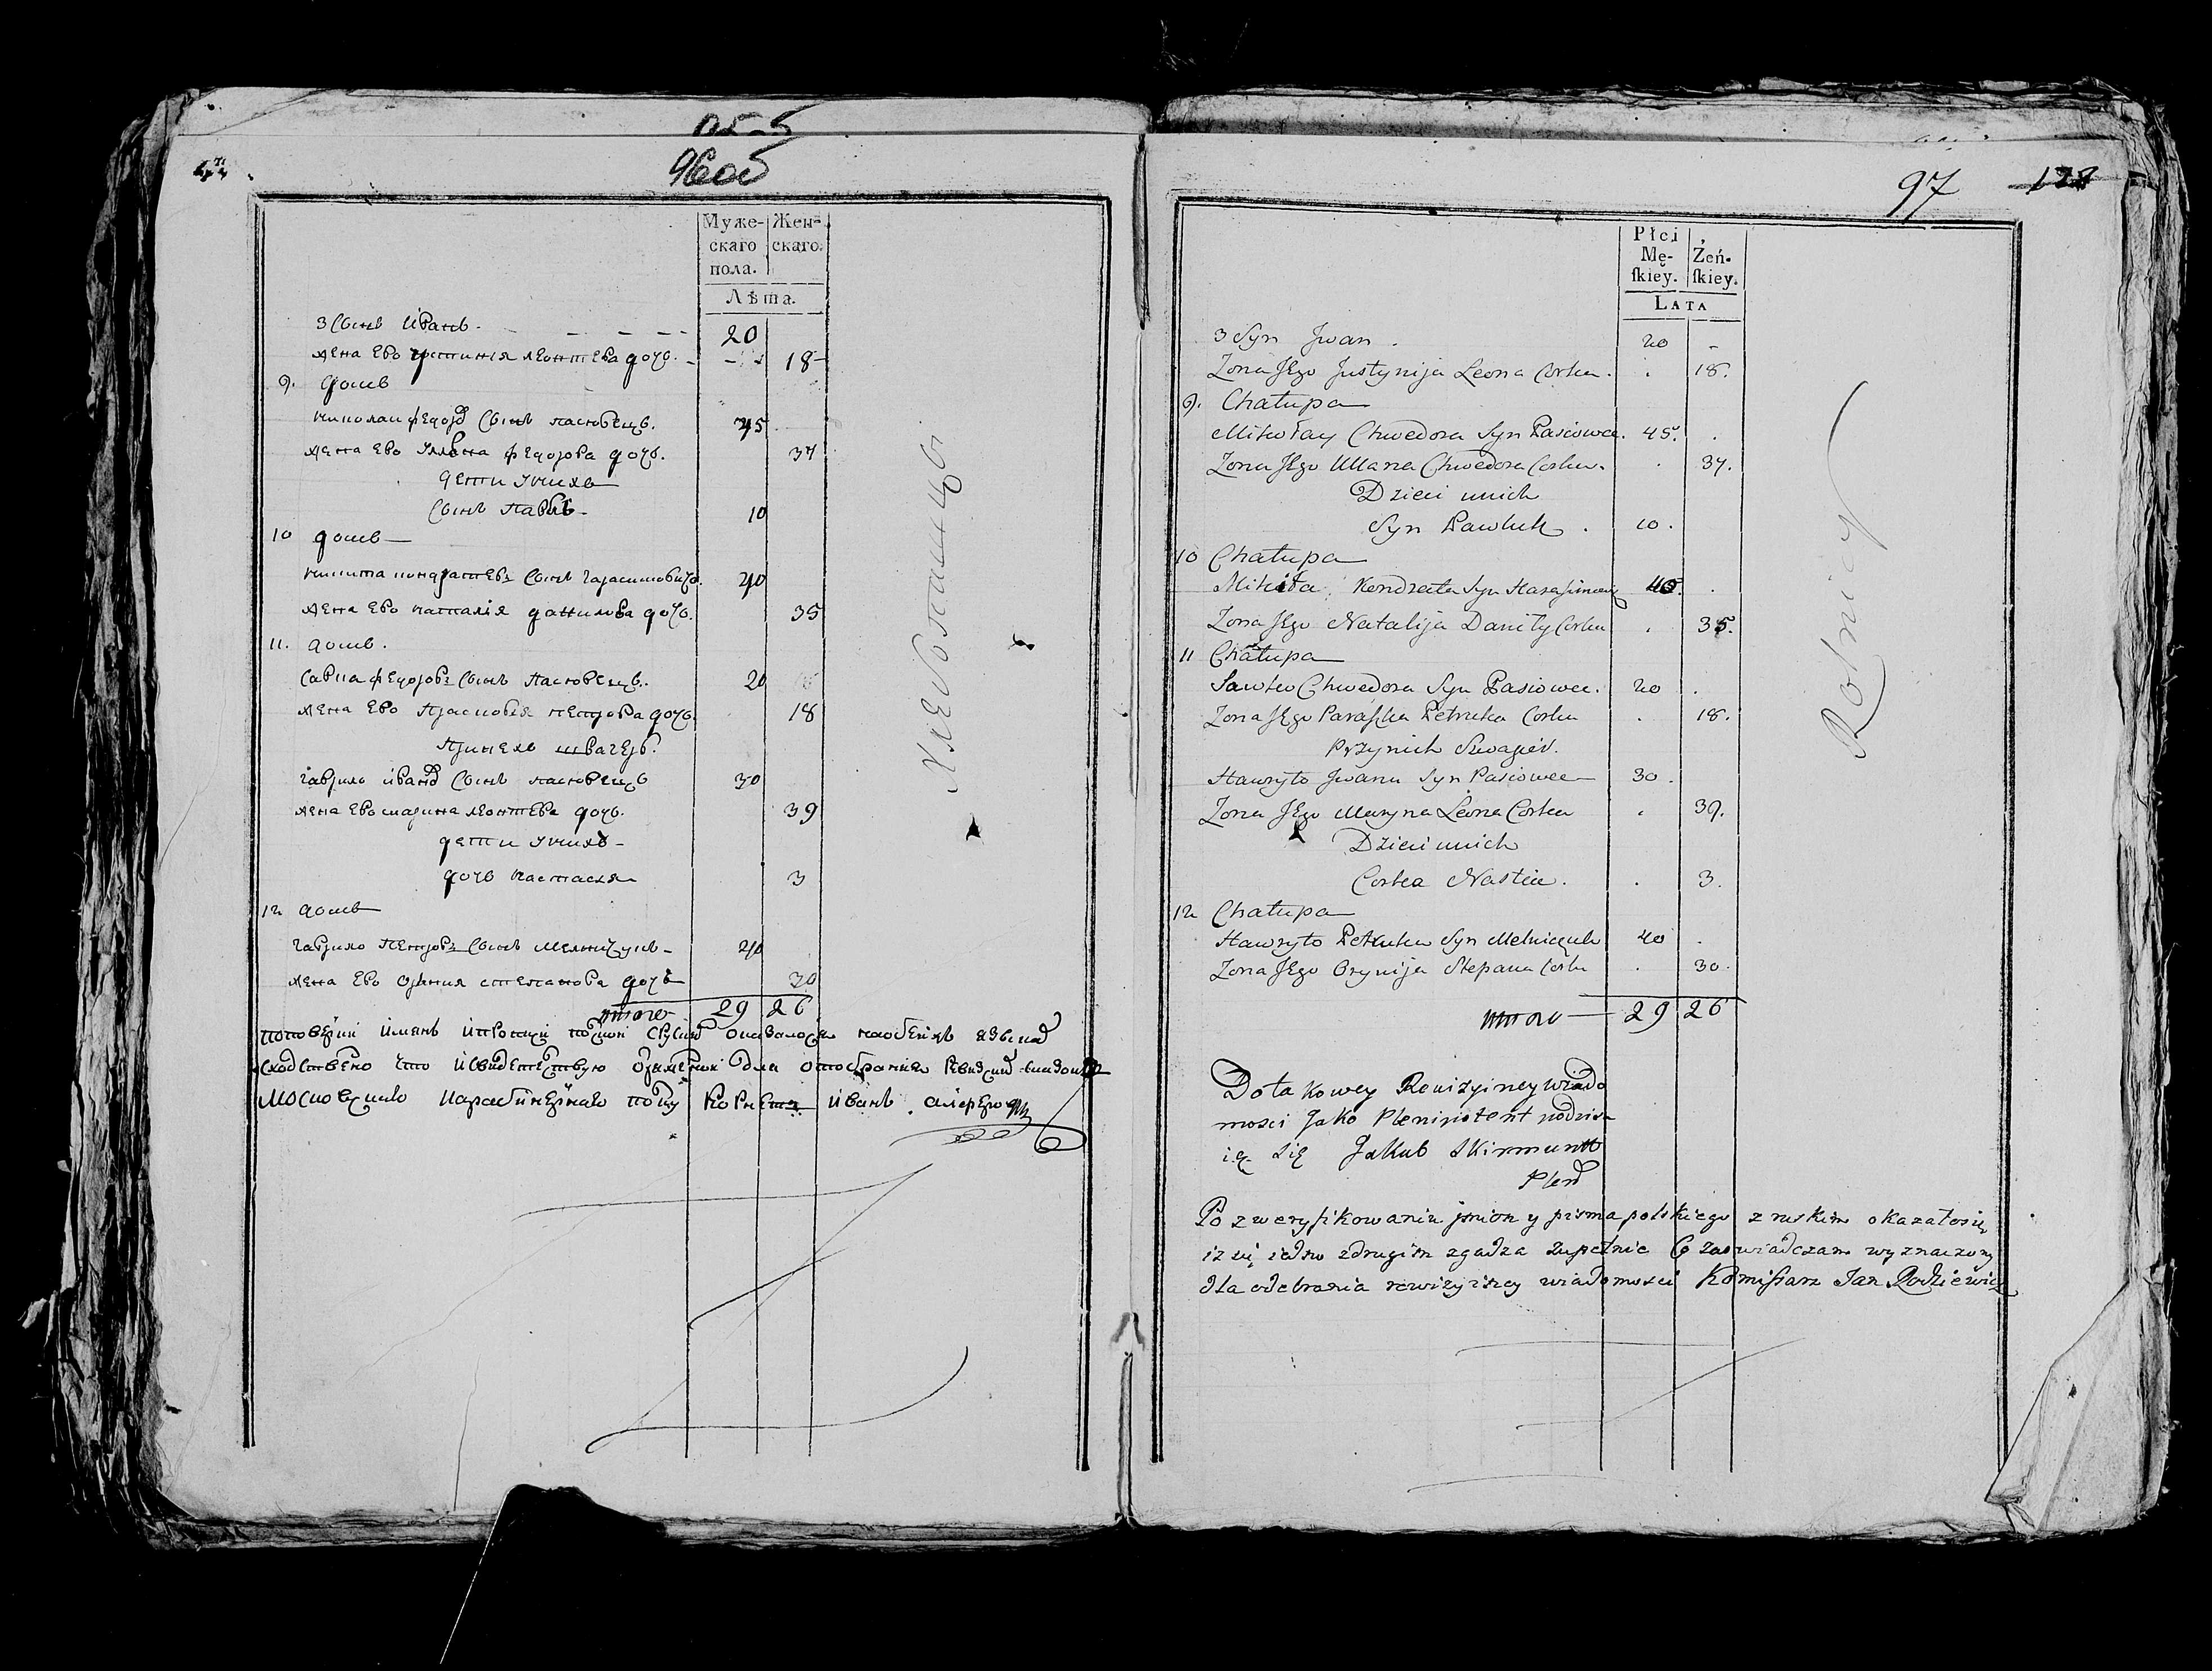 96об
Муже-
скаго
пола.
Жен-
скаго.
Лѣта.
3 Сынъ Иванъ. 20
жена Его Устинія леонтева дочь. 18
9. домъ
николаи федоро Сынъ пасювецъ. 45
жена Его Уляна федорова дочь. 37
дети Унихъ
Сынъ Павлъ 10
10 домъ
никита кондратевъ Сынъ гарасимовичъ. 40
жена Его наталія данилова дочь. 35
11. домъ.
Савка федоровъ Сынъ Пасювецъ. 20
жена Его Прасковея петрова дочь 18
Принехъ швагеръ.
гаврило ивано Сынъ пасювецъ 30
жена Его марина леонтева дочь. 39
дети Унихъ
дочь настасья 3
12 домъ
гаврило Петровъ Сынъ мелничукъ 40
жена Его Орыния степанова дочь 30
итого 29 26
Хлебопашцы
97
Płci
Mę-
ſkiey.
Żeń-
ſkiey.
LATA
3 Syn Jwan. 20 -
Zona JEgo Justynija Leona Corka. . 18.
9. Chałupa
Mikołay Chwedora Syn Pasiowce. 45. .
Zona JEgo Ullana Chwedora Corka. . 37.
Dzieci unich
Syn Pawluk. 10.
10 Chałupa
Mikita Kondrata Syn Harasimowicz 40. .
Zona JEgo Natalija Daniły Corka . 35.
11 Chałupa
Sawka Chwedora Syn Pasiowce. 20 .
Zona JEgo Paraſka Petruka Corka . 18.
Przynich Szwagier.
Hawryło Jwana Syn Pasiowce 30.
Zona JEgo Maryna Leona Corka . 39.
Dzieci unich
Corka Nastia. . 3.
12 Chałupa
Hawryło Petruka Syn Melniczuk 40 .
Zona JEgo Orynija Stepana Corka . 30.
итого 29 26
Rolnicy
Do takowey Rewizyiney wiado
mosci Jako Plenipotent podpisu
ię się Jakub Skirmuntt
Plen
Po zweryfikowaniu jmion y pisma polskiego z ruskim okazałosię
iz się jedno zdrugim zgadza zupełnie Co zaswiadczam wyznaczony
dla odebrania rewizyiney wiadomosci Komiſsarz Jan Rodziewicz